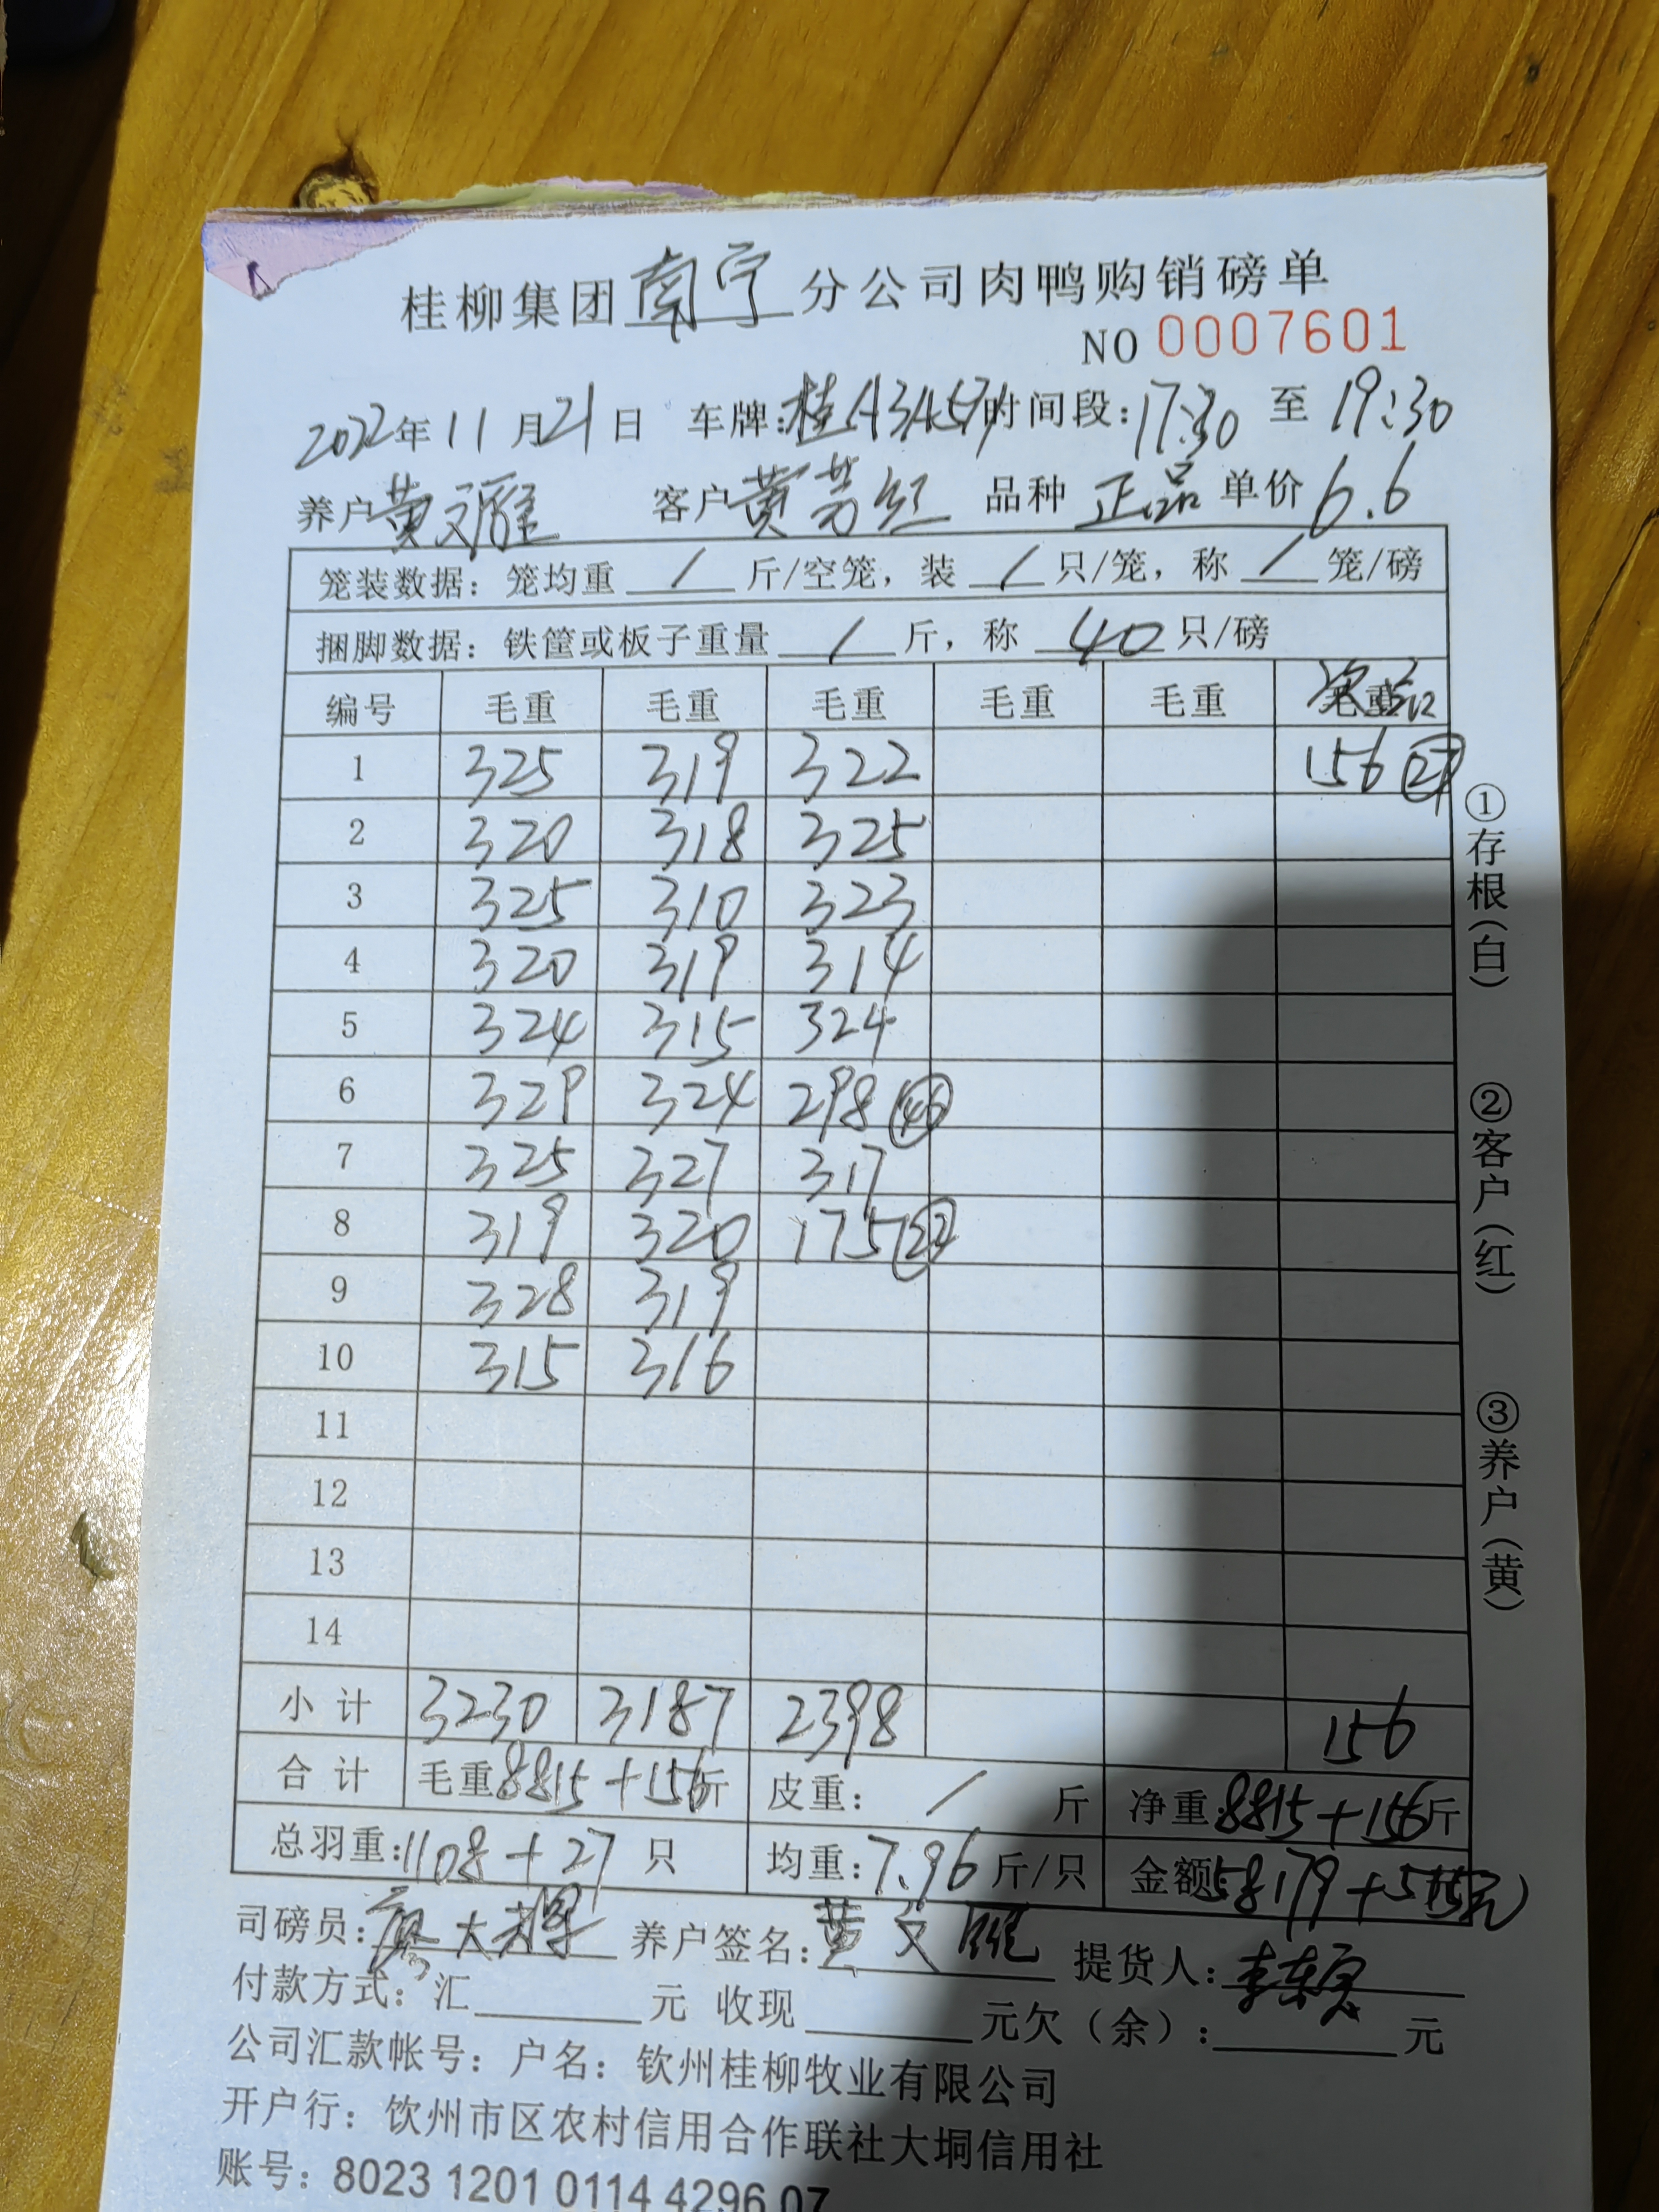 桂柳集团南宁分公司肉鸭购销磅单
NO 0007601
2022年11月21日 车牌:桂 时间段:17:30 至 19:30
养户黄文 客户黄芳红 品种 正品 单价6.6
笼装数据: 笼均重 / 斤/空笼, 装 / 只/笼, 称 / 笼/磅
捆脚数据: 铁筐或板子重量 / 斤, 称 40 只/磅
编号 毛重 毛重 毛重 毛重 毛重
1 325 319 322 156 27
2 320 318 325
3 325 310 323
4 320 319 314
5 324 315 324
6 329 324 298
7 325 327 317
8 319 320 175 22
9 328 319
10 315 316
11
12
13
14
小计 3230 3187 2398 156
合计 毛重8815+156斤 皮重: / 斤 净重:8815+156斤
总羽重:1108+27 只 均重:7.96斤/只 金额:58179+515元
司磅员:廖大 养户签名:黄文 提货人:李东
付款方式: 汇 元 收现 元欠(余): 元
公司汇款帐号: 户名: 钦州桂柳牧业有限公司
开户行: 钦州市区农村信用合作联社大垌信用社
账号: 8023 1201 0114 4296 07
①存根(白)
②客户(红)
③养户(黄)